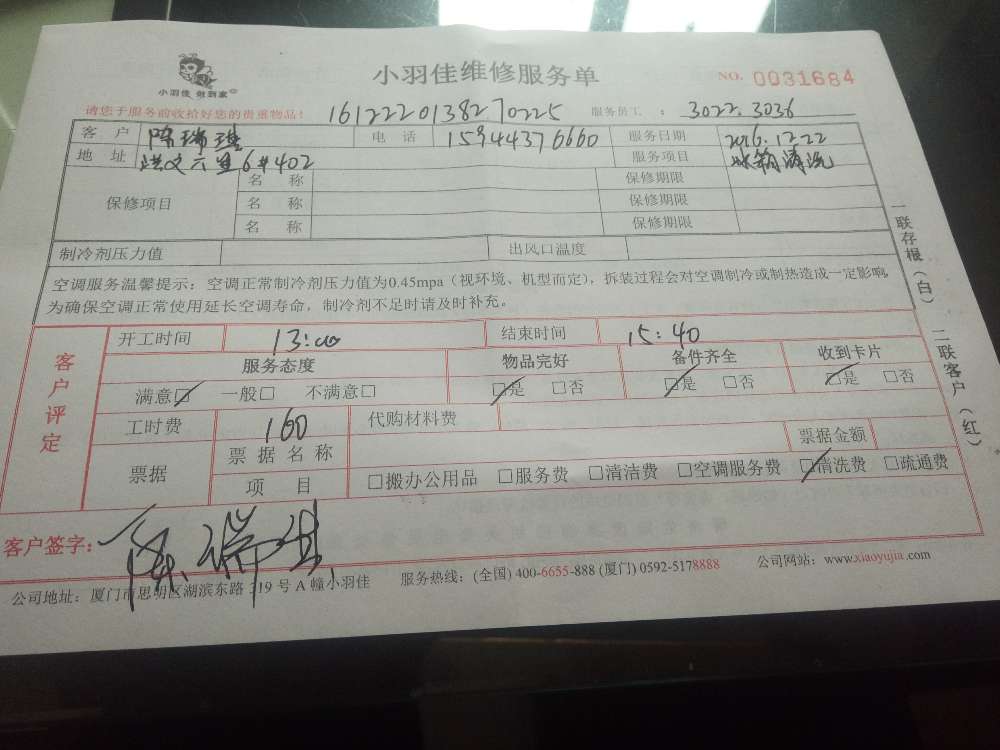 小羽佳 做到家
小羽佳维修服务单 NO. 0031684
请您于服务前收拾好您的贵重物品! 161222013827022​5 服务员工: 3022.3036
客户 陈瑞琪 电话 15944376660 服务日期 2016.12.22
地址 洪文六里6#402 服务项目 冰箱清洗
保修项目 名称 保修期限
名称 保修期限
名称 保修期限
制冷剂压力值 出风口温度
空调服务温馨提示:空调正常制冷剂压力值为0.45mpa(视环境、机型而定),拆装过程会对空调制冷或制热造成一定影响,
为确保空调正常使用延长空调寿命,制冷剂不足时请及时补充。
一联存根(白) 二联客户(红)
客户评定
开工时间 13:00 结束时间 15:40
服务态度 物品完好 备件齐全 收到卡片
满意☑ 一般□ 不满意□ ☑是 □否 ☑是 □否 ☑是 □否
工时费 160 代购材料费
票据 票据名称 票据金额
项目 □搬办公用品 □服务费 □清洁费 □空调服务费 ☑清洗费 □疏通费
客户签字: 陈瑞琪
公司地址:厦门市思明区湖滨东路319号A幢小羽佳 服务热线:(全国) 400-6655-888 (厦门) 0592-5178888 公司网站:www.xiaoyujia.com